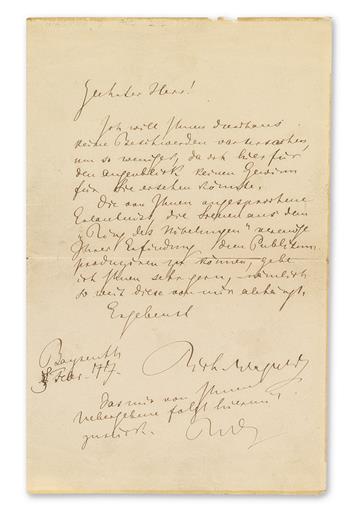 Geehrter Herr!
Ich will Ihnen durchaus
keine Beschwerden verursachen,
um so weniger, da ich hier für
den Augenblick keinen Gewinn
für Sie ersehen könnte.
Die von Ihnen angesprochene
Erlaubnis, die Scenen aus dem
"Ring des Nibelungen" vermöge
Ihrer Erfindung dem Publikum
produziren zu können, gebe
ich Ihnen sehr gern, nämlich
so weit diese von mir abhängt.
Ergebenst
Bayreuth
Febr. 77.
Rich. Wagner
Das mir von Ihnen
Uebergebene folgt hiermit
zurück.